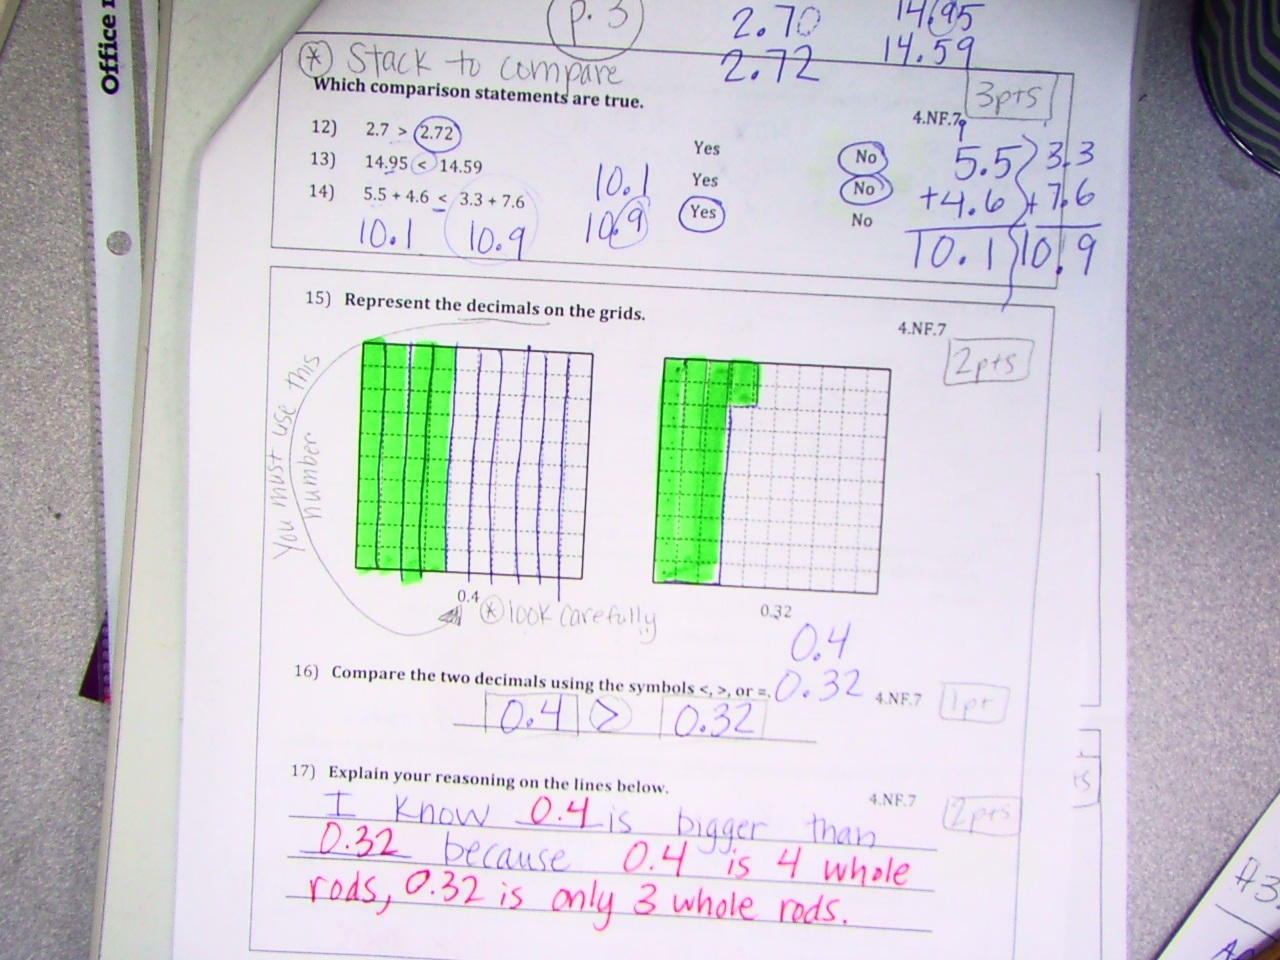 Office
p. 3
2.70
2.72
14.95
14.59
* Stack to compare
Which comparison statements are true.
3pts
4.NF.7
12) 2.7 > 2.72 Yes No
13) 14.95 < 14.59 Yes No
14) 5.5 + 4.6 < 3.3 + 7.6 Yes No
10.1 10.9
10.1
10.9
5.5 3.3
+4.6 +7.6
10.1 10.9
15) Represent the decimals on the grids.
4.NF.7
2pts
You must use this
number
0.4
* look carefully
0.32
0.4
0.32
16) Compare the two decimals using the symbols <, >, or =.
4.NF.7
1pt
0.4 > 0.32
17) Explain your reasoning on the lines below.
4.NF.7
2pts
I know 0.4 is bigger than
0.32 because 0.4 is 4 whole
rods, 0.32 is only 3 whole rods.